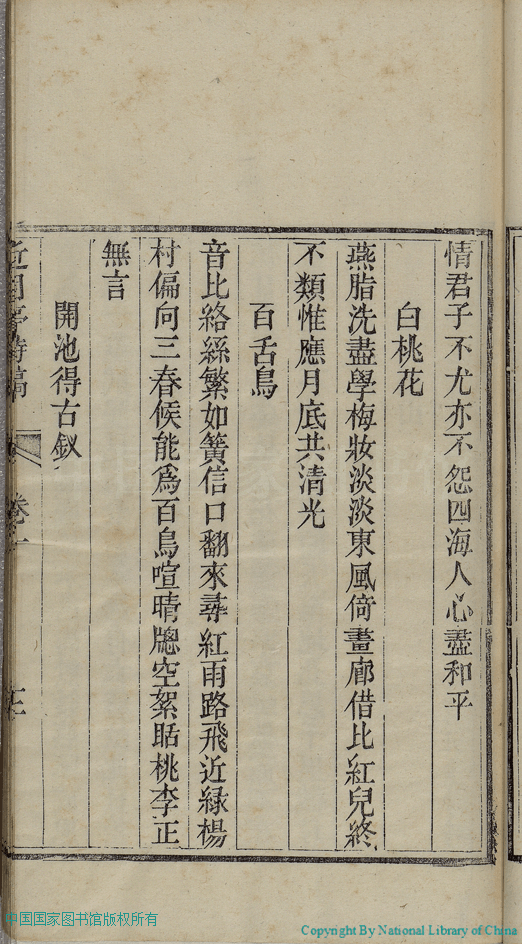 情君子不尤亦不怨四海人心盡和平
白桃花
燕脂洗盡學梅妝淡淡東風倚畫廊借比紅兒終
不類惟應月底共清光
百舌鳥
音比絡絲繁如簧信口翻來尋紅雨路飛近緑楊
村偏向三春候能爲百鳥喧晴牕空絮聒桃李正
無言
開池得古釵
詩稿
卷一
中国国家图书馆版权所有
Copyright By National Library of China